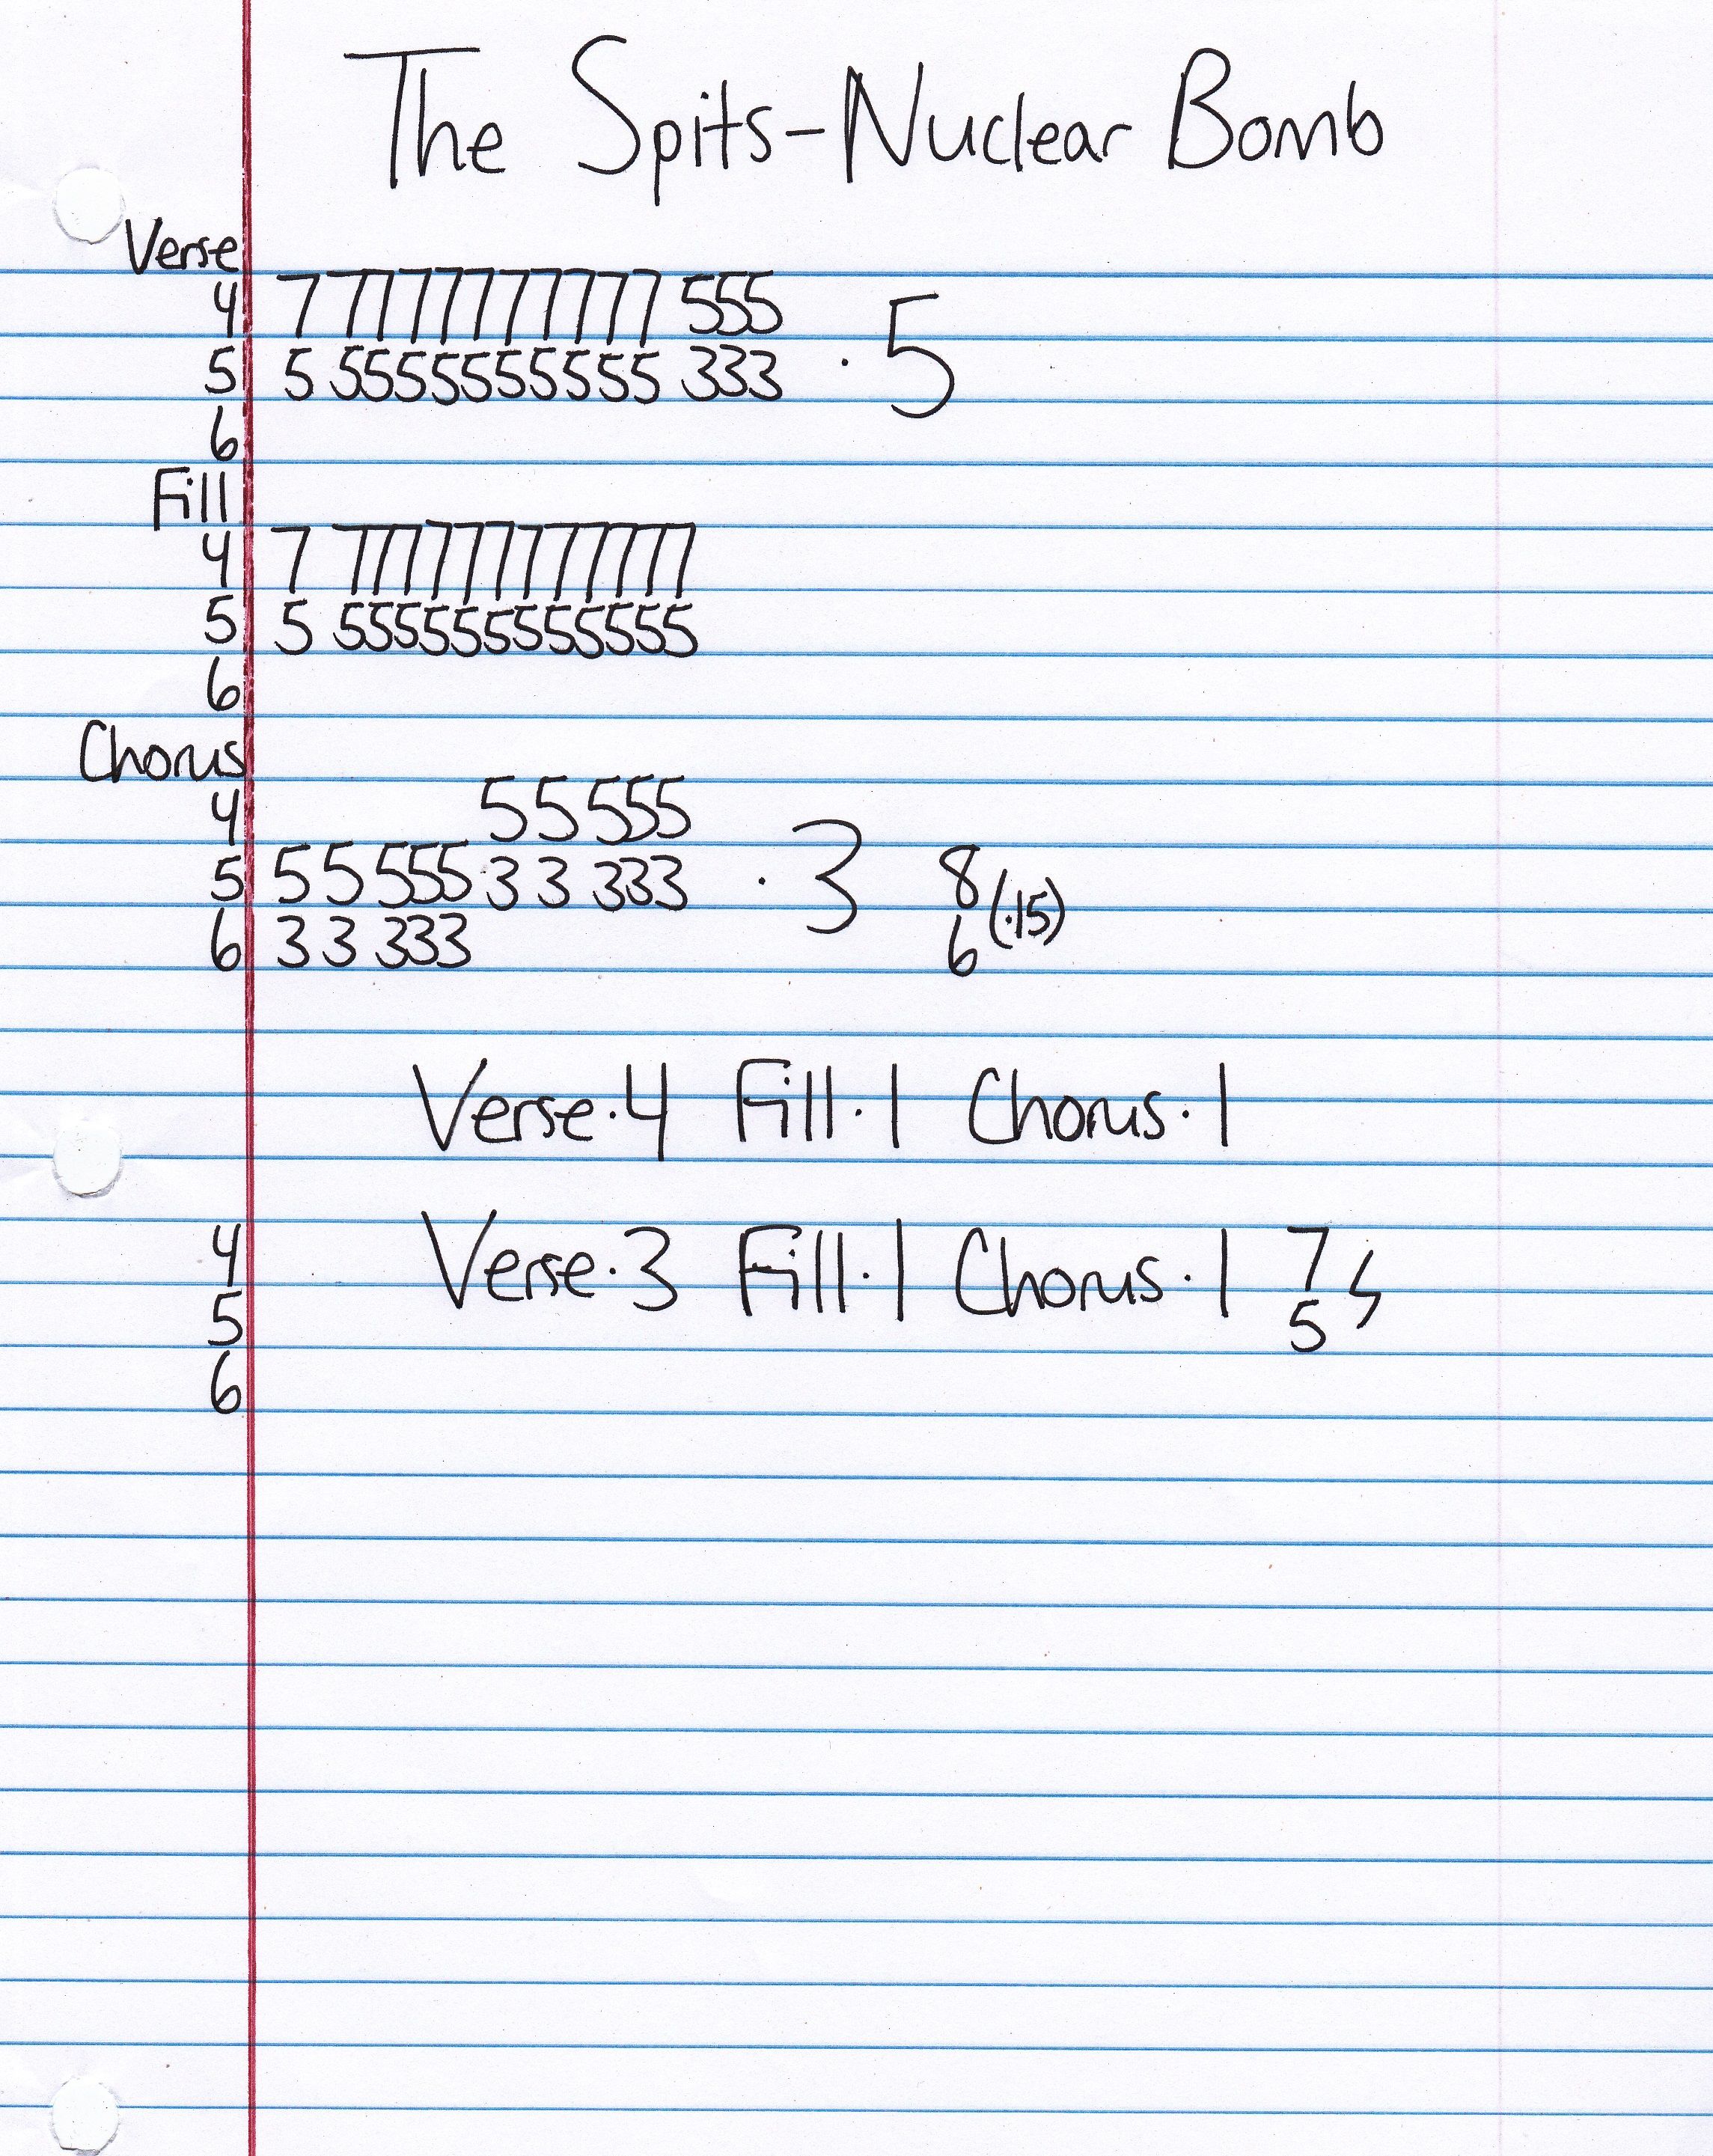 The Spits-Nuclear Bomb
Verse
4 7 7777777777 555
5 5 5555555555 333 · 5
6
Fill
4 7 777777777777
5 5 555555555555
6
Chorus
4 5 5 555
5 5 5 555 3 3 333 · 3 8 (·15)
6 3 3 333 6
Verse·4 Fill·1 Chorus·1
4 Verse·3 Fill·1 Chorus·1 7
5 5
6